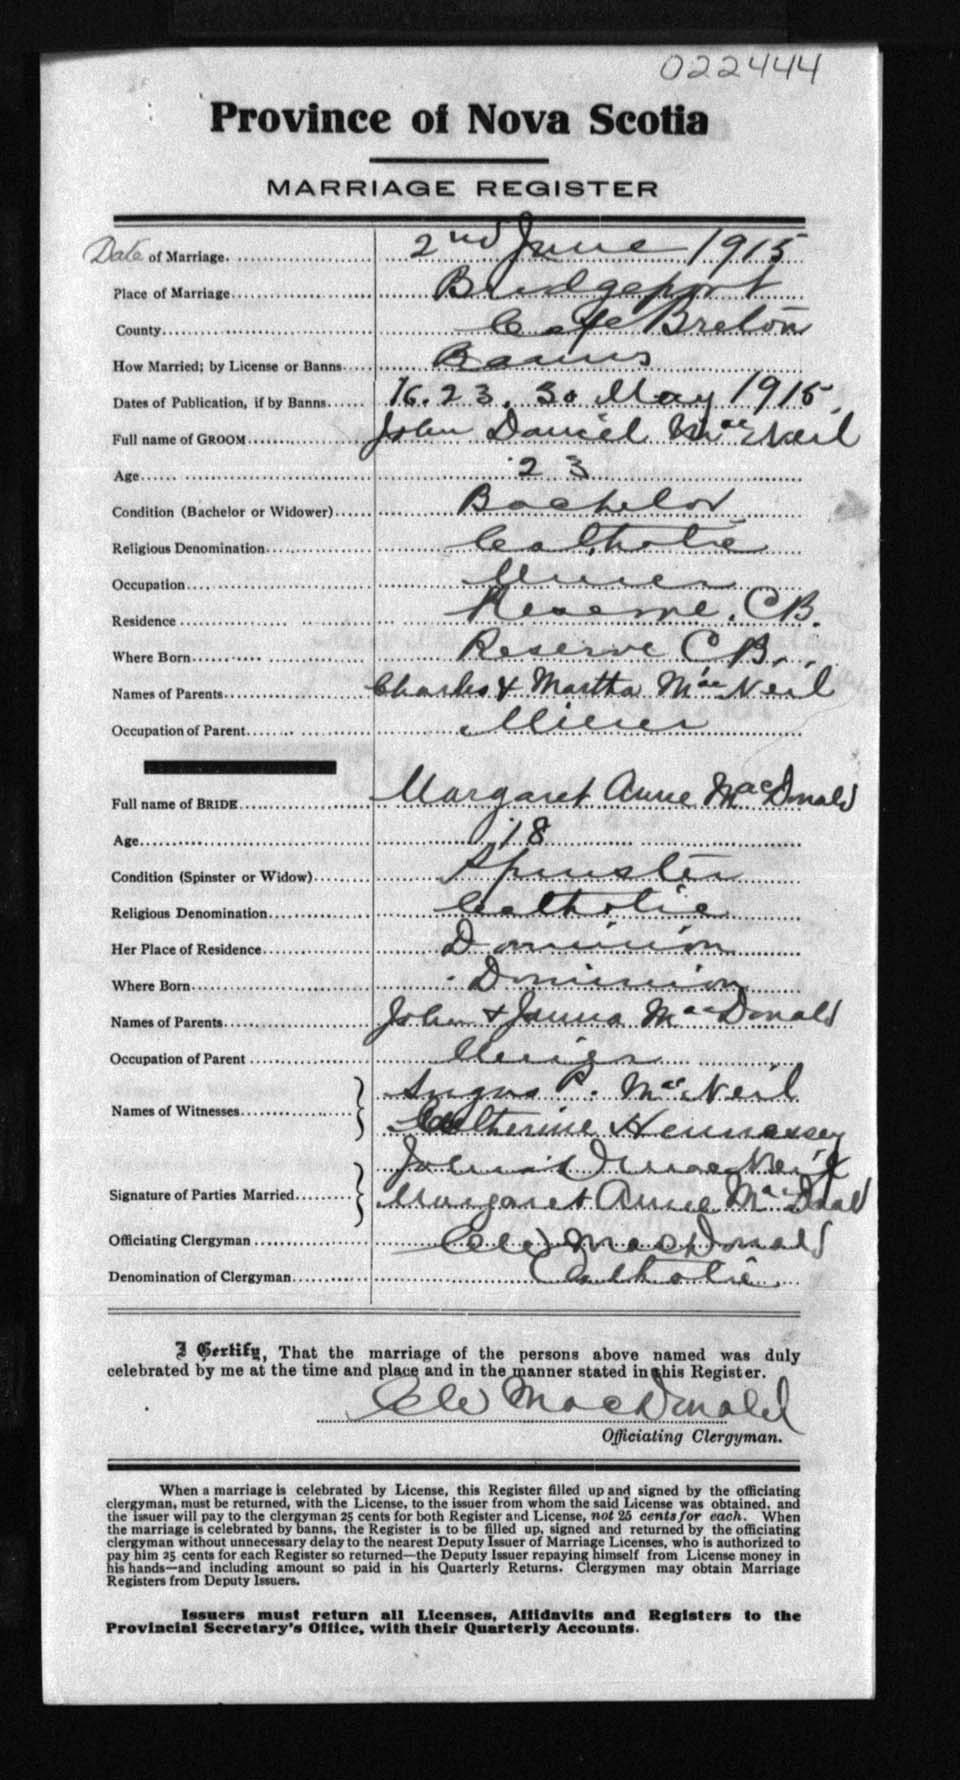 022444
Province of Nova Scotia
MARRIAGE REGISTER
Date of Marriage. 2nd June 1915
Place of Marriage Bridgeport
County Cape Breton
How Married; by License or Banns Banns
Dates of Publication, if by Banns 16. 23. 30 May 1915.
Full name of GROOM John Daniel MacNeil
Age 23
Condition (Bachelor or Widower) Bachelor
Religious Denomination Catholic
Occupation Miner
Residence Reserve. C.B.
Where Born Reserve C.B.
Names of Parents Charles & Martha MacNeil
Occupation of Parent Miner
Full name of BRIDE Margaret Anne MacDonald
Age 18
Condition (Spinster or Widow) Spinster
Religious Denomination Catholic
Her Place of Residence Dominion
Where Born Dominion
Names of Parents John & MacDonald
Occupation of Parent
Names of Witnesses Angus P. MacNeil
Catherine Hennessey
Signature of Parties Married MacNeil
Margaret Anne MacDonald
Officiating Clergyman MacDonald
Denomination of Clergyman Catholic
I Certify, That the marriage of the persons above named was duly
celebrated by me at the time and place and in the manner stated in this Register.
MacDonald
Officiating Clergyman.
When a marriage is celebrated by License, this Register filled up and signed by the officiating
clergyman, must be returned, with the License, to the issuer from whom the said License was obtained, and
the issuer will pay to the clergyman 25 cents for both Register and License, not 25 cents for each. When
the marriage is celebrated by banns, the Register is to be filled up, signed and returned by the officiating
clergyman without unnecessary delay to the nearest Deputy Issuer of Marriage Licenses, who is authorized to
pay him 25 cents for each Register so returned—the Deputy Issuer repaying himself from License money in
his hands—and including amount so paid in his Quarterly Returns. Clergymen may obtain Marriage
Registers from Deputy Issuers.
Issuers must return all Licenses, Affidavits and Registers to the
Provincial Secretary's Office, with their Quarterly Accounts.